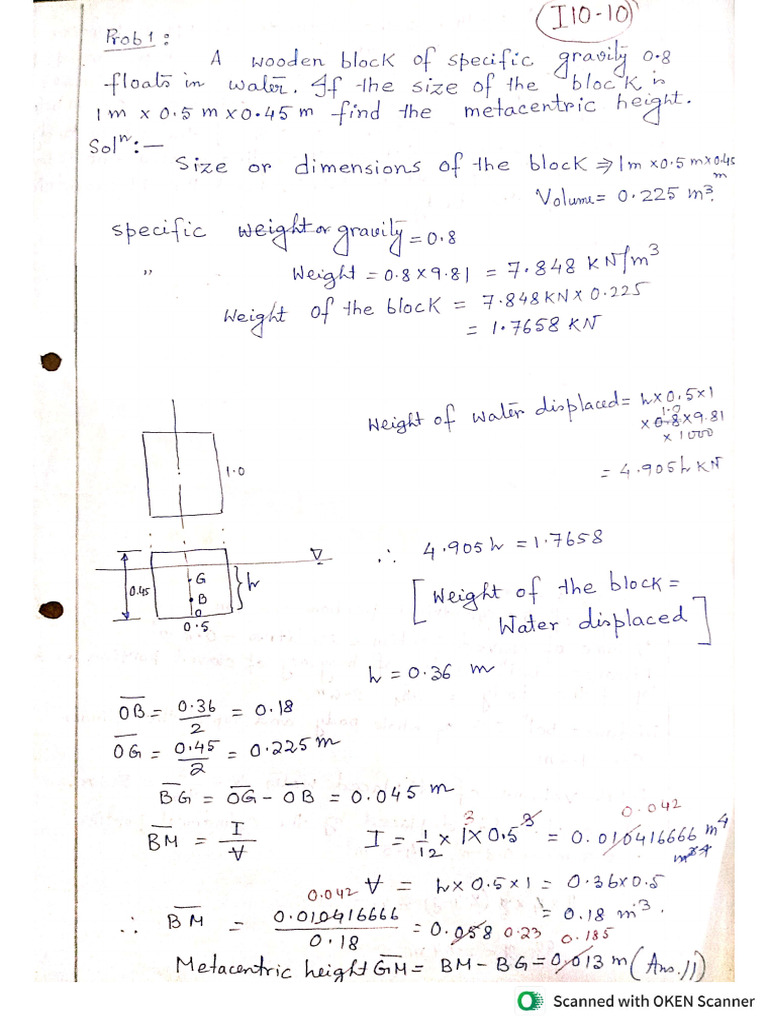 I10-10
Prob 1:
A wooden block of specific gravity 0.8
floats in water. If the size of the block is
1 m x 0.5 m x 0.45 m find the metacentric height.
Solⁿ:—
Size or dimensions of the block ⇒ 1m x 0.5 m x 0.45 m
Volume = 0.225 m³.
specific weight or gravity = 0.8
" Weight = 0.8 x 9.81 = 7.848 KN/m³
Weight of the block = 7.848 KN x 0.225
= 1.7658 KN
Weight of water displaced = h x 0.5 x 1
1.0
x 0.8 x 9.81
x 1000
= 4.905 h KN
1.0
G
B
O
0.45
h
0.5
∴ 4.905 h = 1.7658
[Weight of the block =
Water displaced]
h = 0.36 m
OB = 0.36/2 = 0.18
OG = 0.45/2 = 0.225 m
BG = OG - OB = 0.045 m
0.042
BM = I/V I = 1/12 x 1³ x 0.5³ = 0.010416666 m⁴
0.042 V = h x 0.5 x 1 = 0.36 x 0.5
= 0.18 m³.
∴ BM = 0.010416666/0.18 = 0.058 0.23
0.185
Metacentric height GM = BM - BG = 0.013 m (Ans.//)
Scanned with OKEN Scanner